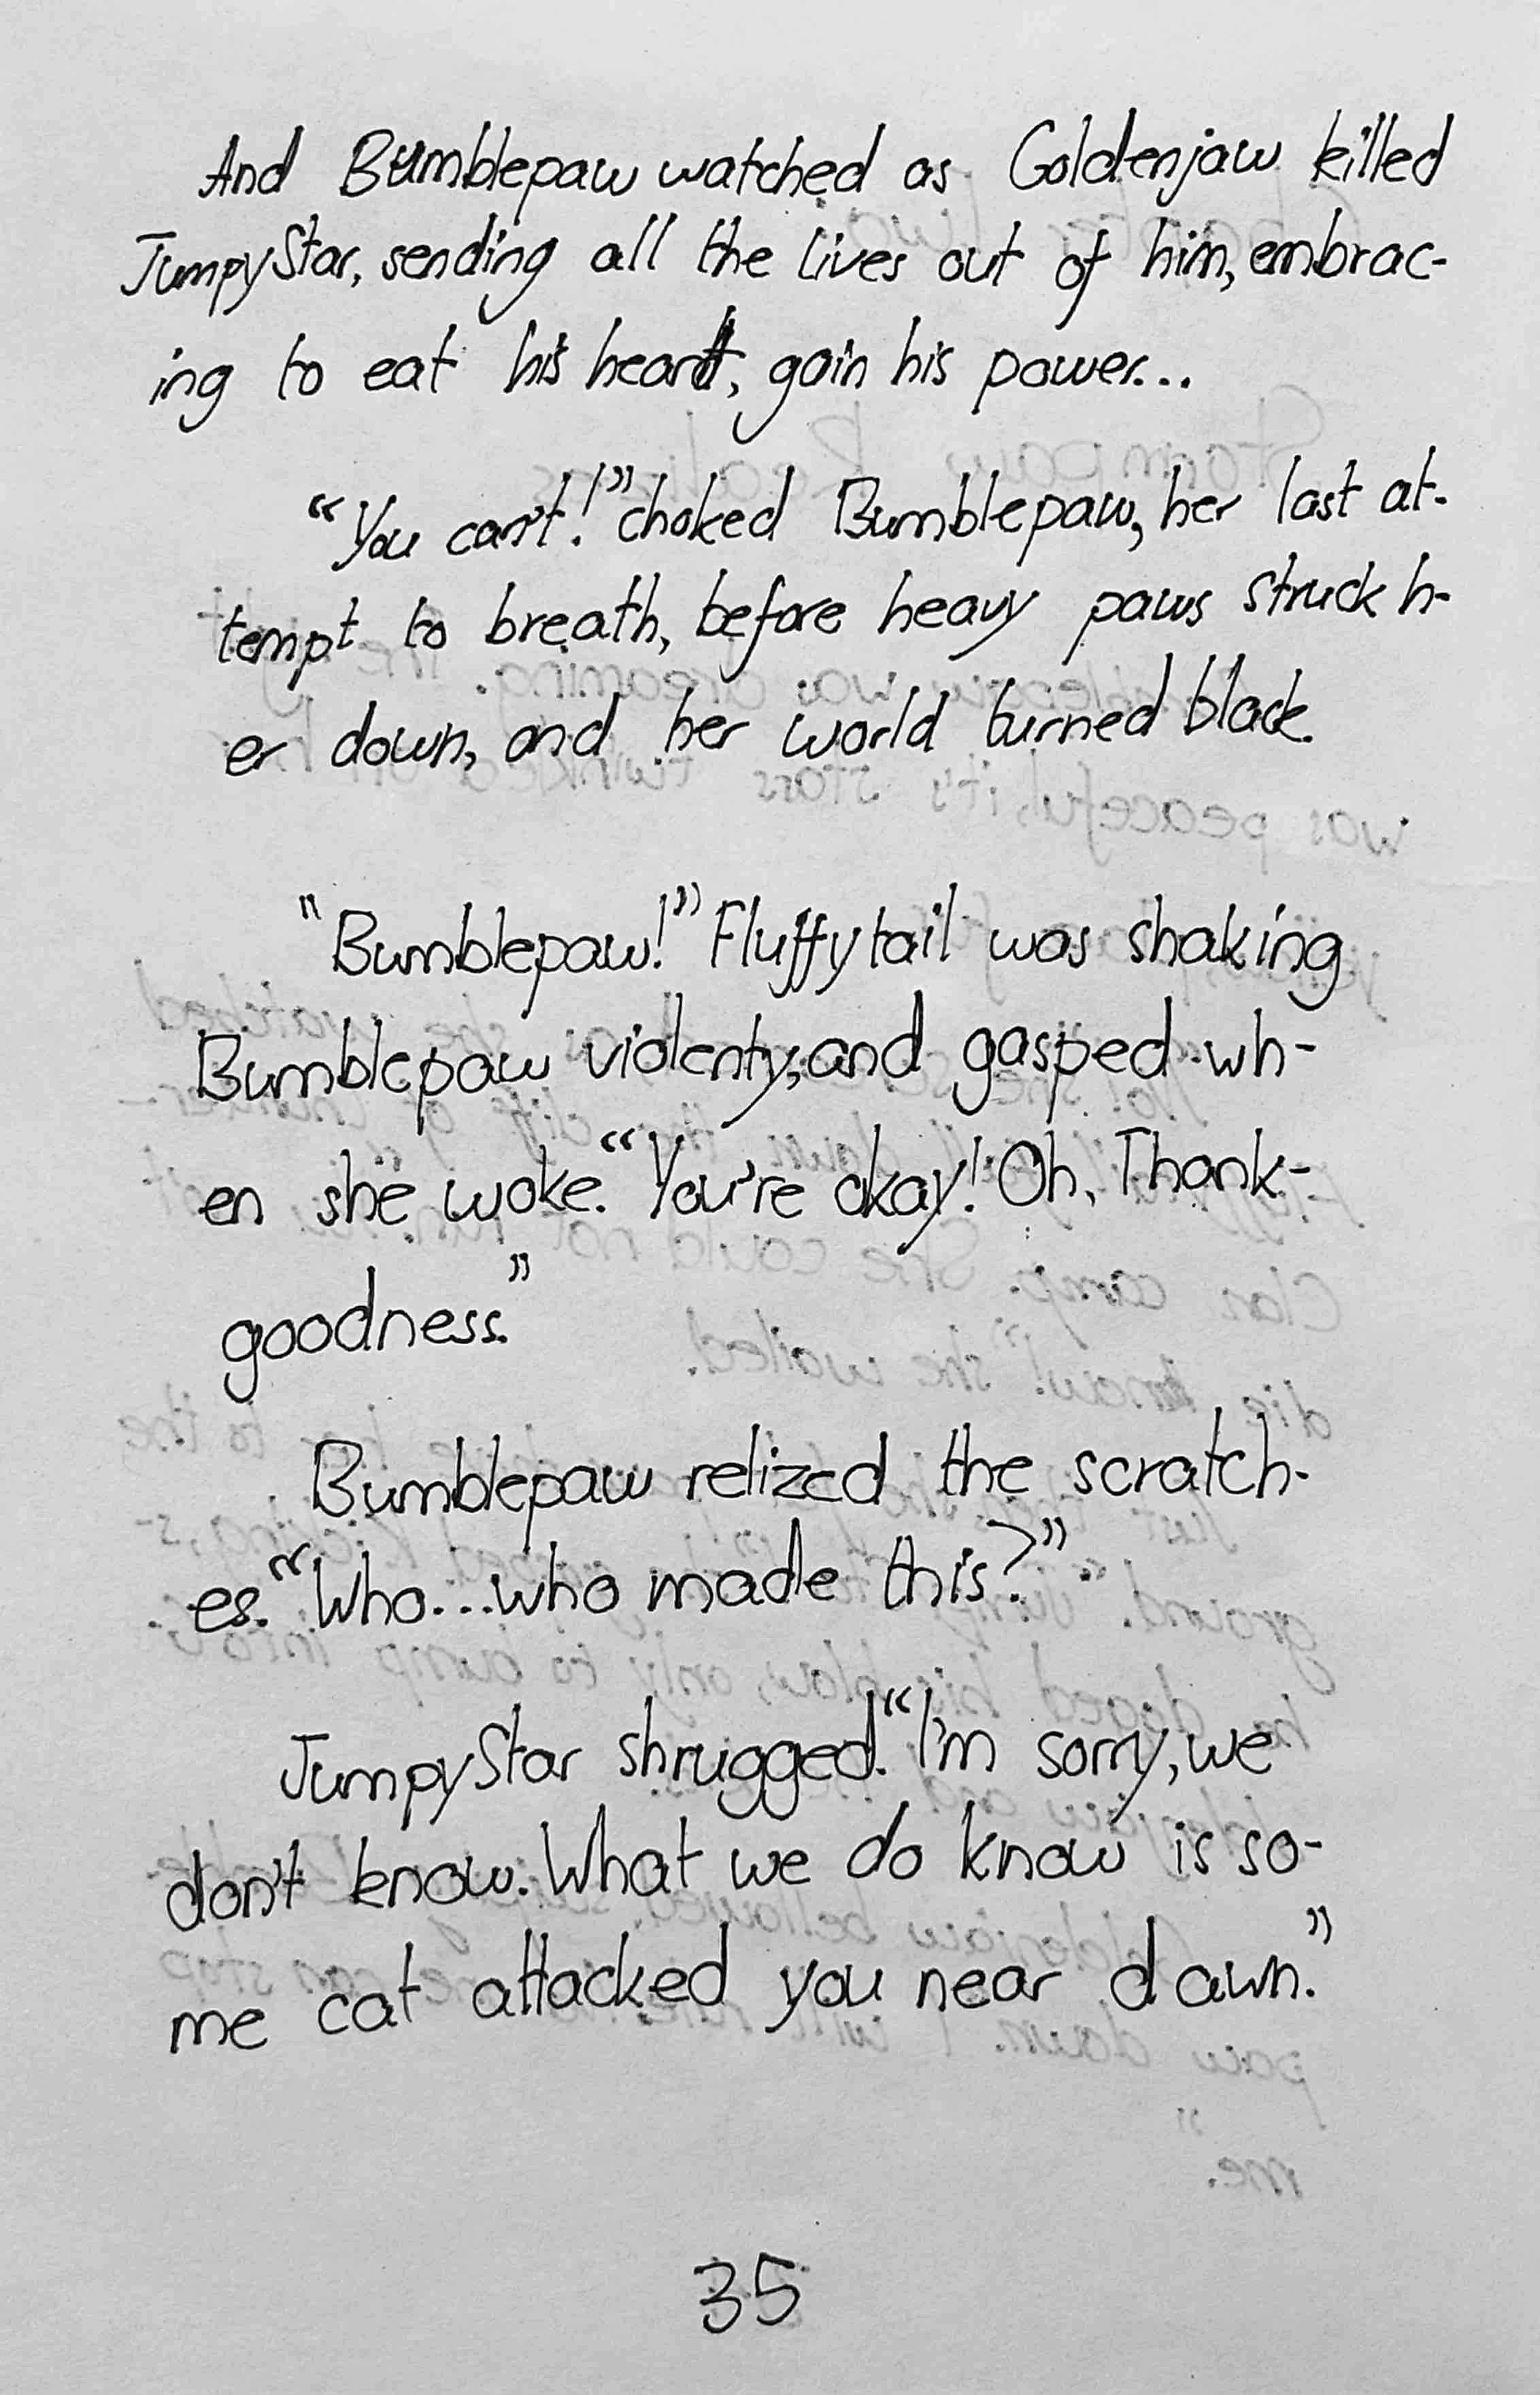 And Bumblepaw watched as Goldenjaw killed
JumpyStar, sending all the lives out of him, embrac-
ing to eat his heart, gain his power...
“You can't!” choked Bumblepaw, her last at-
tempt to breath, before heavy paws struck h-
er down, and her world turned black.
"Bumblepaw!” Fluffytail was shaking
Bumblepaw violenty, and gasped wh-
en she woke. “You're okay! Oh, Thank-
goodness.”
Bumblepaw relized the scratch-
es. “Who...who made this?”
JumpyStar shrugged. “I'm sorry, we
don't know. What we do know is so-
me cat attacked you near dawn.”
35